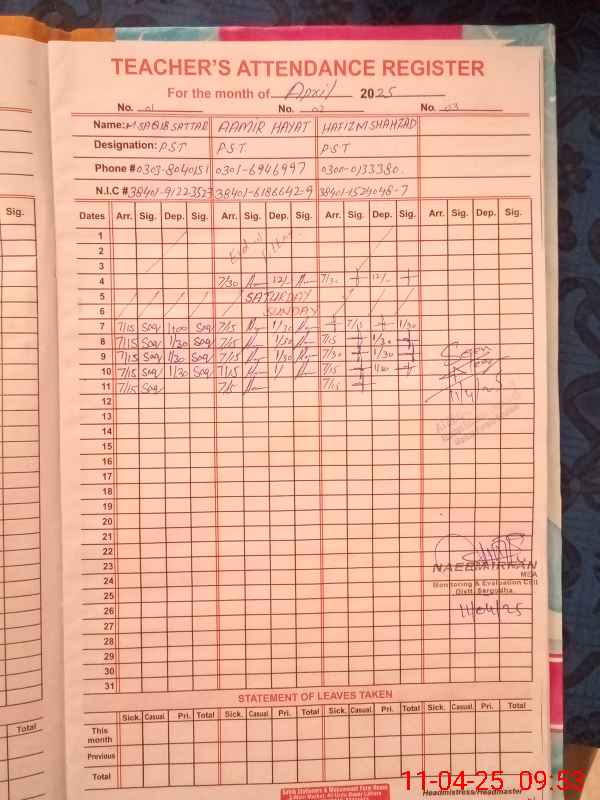 TEACHER'S ATTENDANCE REGISTER
For the month of April 2025
No. 01 No. 02 No. 03
Name: M SAQIB SATTAR AAMIR HAYAT HAFIZ M SHAHZAD
Designation: P.S.T P.S.T P.S.T
Phone # 0303-8040151 0301-6946997 0300-0133380
N.I.C # 38401-9122352 38401-6186642-9 38401-1524048-7
Dates Arr. Sig. Dep. Sig. Arr. Sig. Dep. Sig. Arr. Sig. Dep. Sig. Arr. Sig. Dep. Sig.
Sig.
1
2
3
4 7/30 12/- 7/30 12/-
5 SATURDAY
6 SUNDAY
7 7/15 Saq 1/00 Saq 7/15 1/30 7/15 1/30
8 7/15 Saq 1/30 Saq 7/15 1/30 7/15 1/30
9 7/15 Saq 1/30 Saq 7/15 1/30 7/30 1/30
10 7/15 Saq 1/30 Saq 7/15 1/ 7/15 1/30
11 7/15 Saq 7/15 7/15
Seen
11/4/25
12
13
14
15
16
17
18
19
20
21
22
23
NAEEM IRFAN
MEA
24
Monitoring & Evaluation Cell
Distt. Sargodha.
25
11/04/25
26
27
28
29
30
31
STATEMENT OF LEAVES TAKEN
Sick. Casual Pri. Total Sick. Casual Pri. Total Sick. Casual Pri. Total Sick. Casual Pri. Total
Total
This month
Previous
Total
Headmistress/Headmaster
11-04-25 09:53